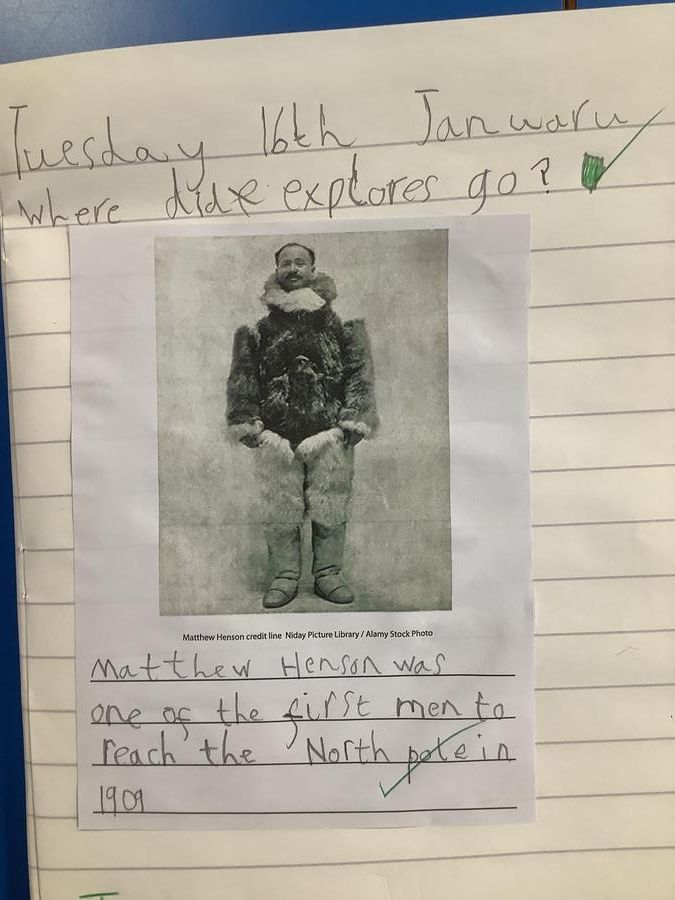 Tuesday 16th Januaru
Where did explores go?
Matthew Henson credit line Niday Picture Library / Alamy Stock Photo
Matthew Henson was
one of the first men to
reach the North pole in
1909